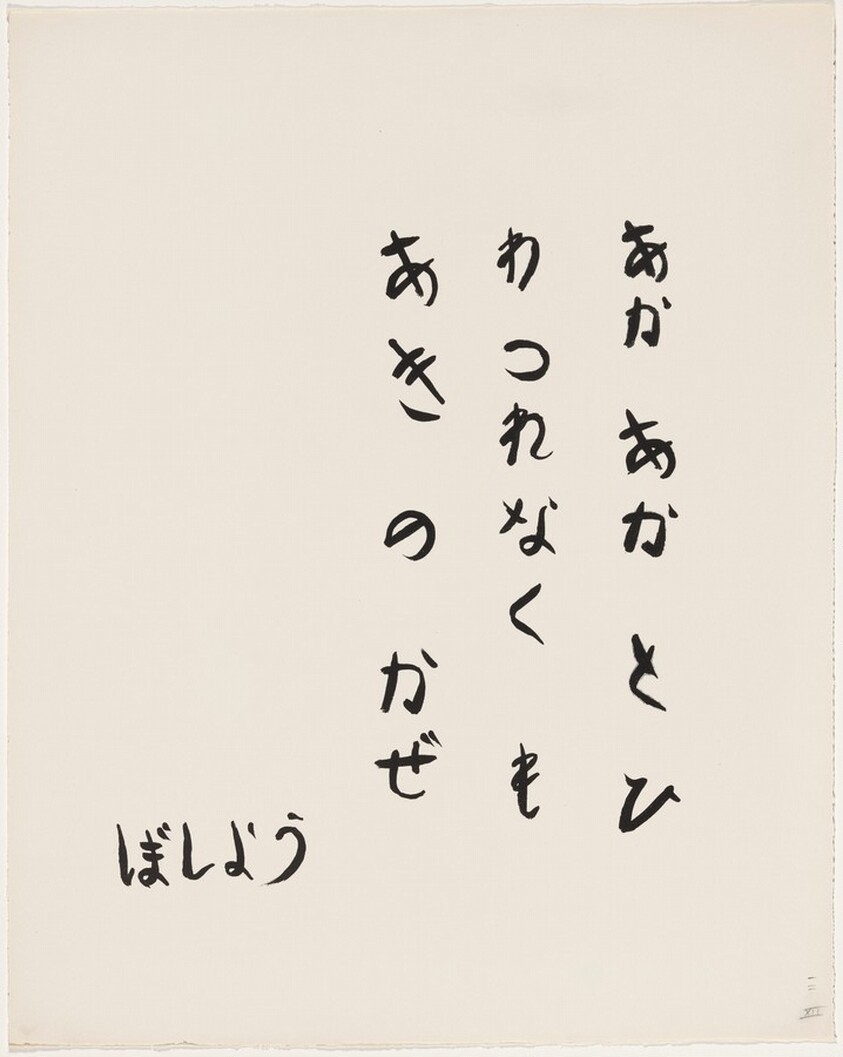 あか あか と ひ
わ つれなく も
あき の かぜ
ぼしよう
一二
XII